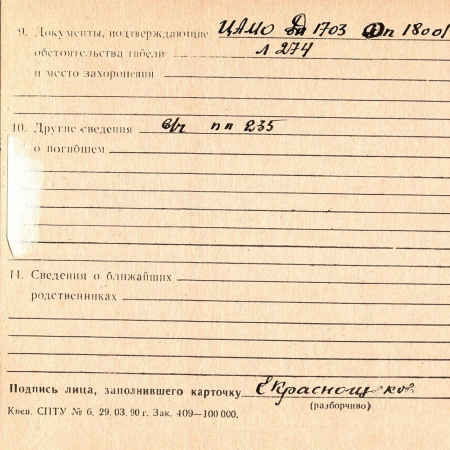 9. Документы, подтверждающие ЦАМО Д 1703 Оп 18001
обстоятельства гибели л 274
и место захоронения
10. Другие сведения в/ч пп 235
о погибшем
11. Сведения о ближайших
родственниках
Подпись лица, заполнившего карточку ЕКраснощеков
(разборчиво)
Киев. СПТУ № 6, 29. 03. 90 г. Зак. 409—100 000.